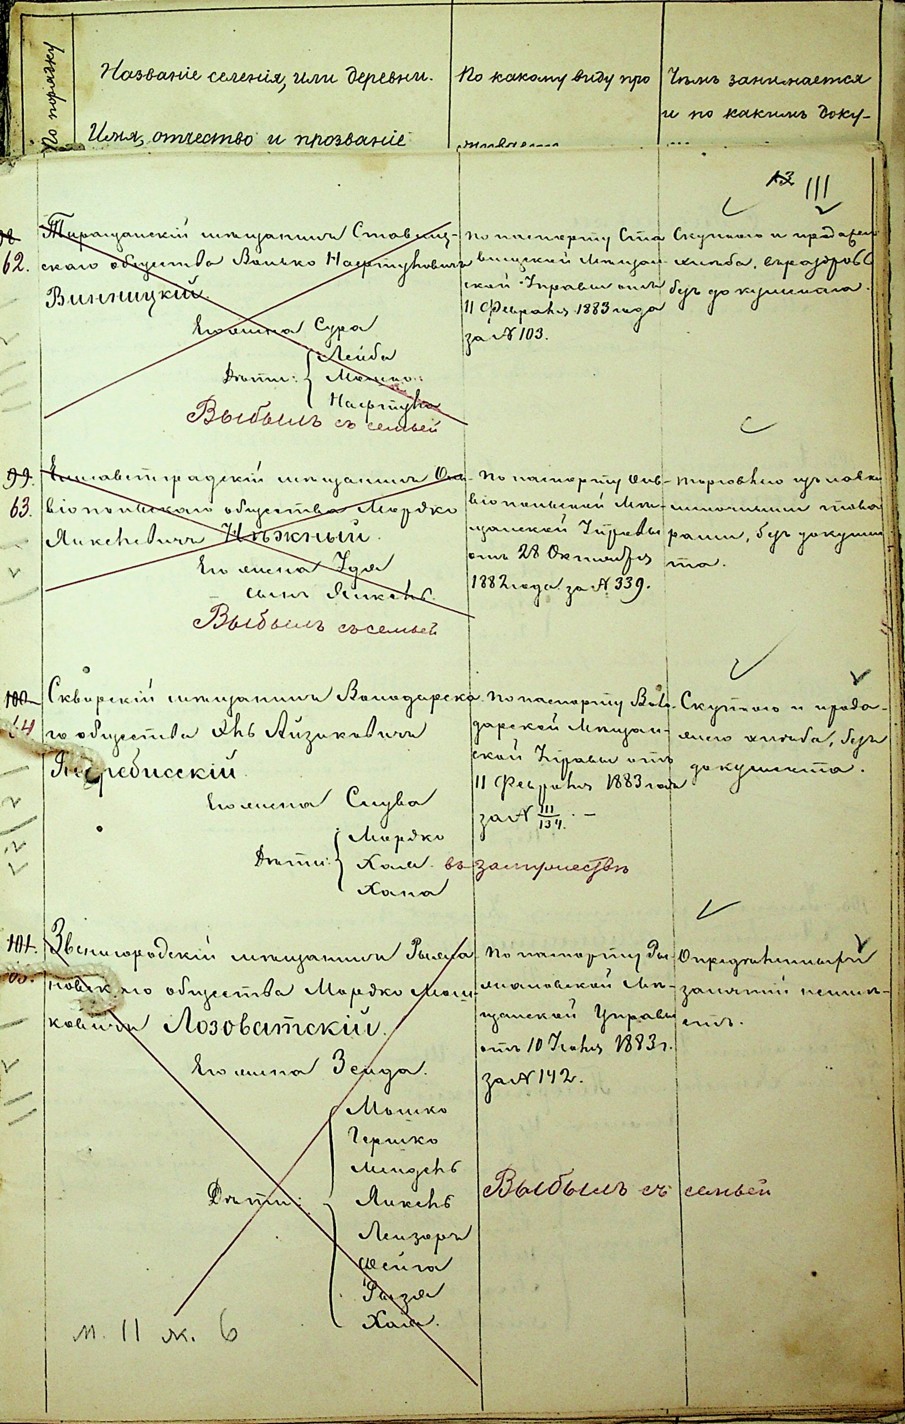 По порядку
Названіе селенія, или деревни.
Имя, отчество и прозваніе
По какому виду про
живает
Чѣмъ занимается
и по какимъ доку-
13 111
62.
Таращанскій мѣщанинъ Ставищ-
скаго общества Волько Нафтуловичъ
Винницкій.
Его жена Сура
Дѣти:
Лейба
Мошко
Нафтула
Выбылъ съ семьей
По паспорту Ста
вищской Мѣщан
ской Управы отъ
11 Февраля 1883 года
за № 103.
Скупкою и продажею
хлѣба, въ
безъ документа.
99.
63.
Елисаветградскій мѣщанинъ Оль-
віопольскаго общества Мордко
Янкелевичъ Нѣжный.
Его жена Удя
сынъ Янкель.
Выбылъ съ семьей
По паспорту Оль-
віопольской Мѣ-
щанской Управы
отъ 28 Октября
1882 года за № 339.
Торговлею
това
рами, безъ докумен
та.
100
64
Сквирскій мѣщанинъ Володарска
го общества Хаъ Айзиковичъ
Ястребисскій.
Его жена Слува
Дѣти:
Мордко
Хая въ замужествѣ
Хана
По паспорту Воло-
дарской Мѣщан-
ской Управы отъ
11 Февраля 1883 года
за № III/134. –
Скупкою и прода-
жею хлѣба, безъ
документа.
101.
65.
Звенигородскій мѣщанинъ Рыжа
новскаго общества Мордко Мош-
ковичъ Лозоватскій.
Его жена Зелда.
Дѣти:
Мошко
Гершко
Мендель
Янкель
Лейзоръ
Фейга
Рызя
Хая.
По паспорту Ры-
жановской Мѣ-
щанской Управы
отъ 10 Іюня 1883 г.
за № 142.
Опредѣленныхъ
занятій неимѣ-
етъ.
Выбылъ съ семьей
м. 11 ж. 6